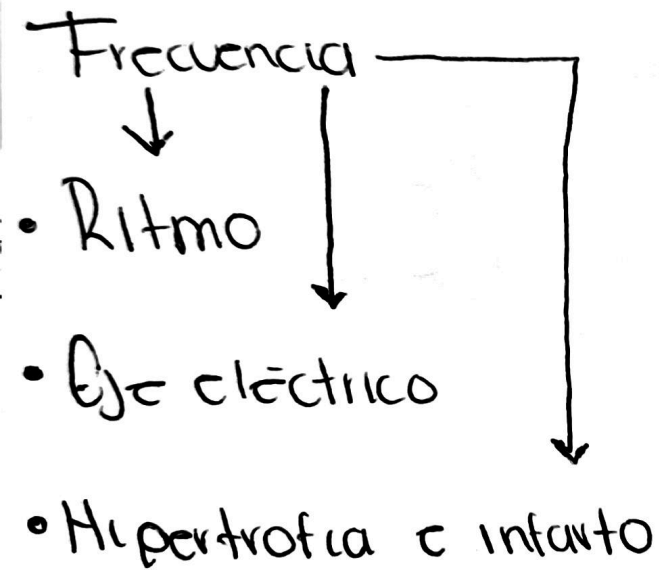 Frecuencia
• Ritmo
• Eje eléctrico
• Hipertrofia e infarto